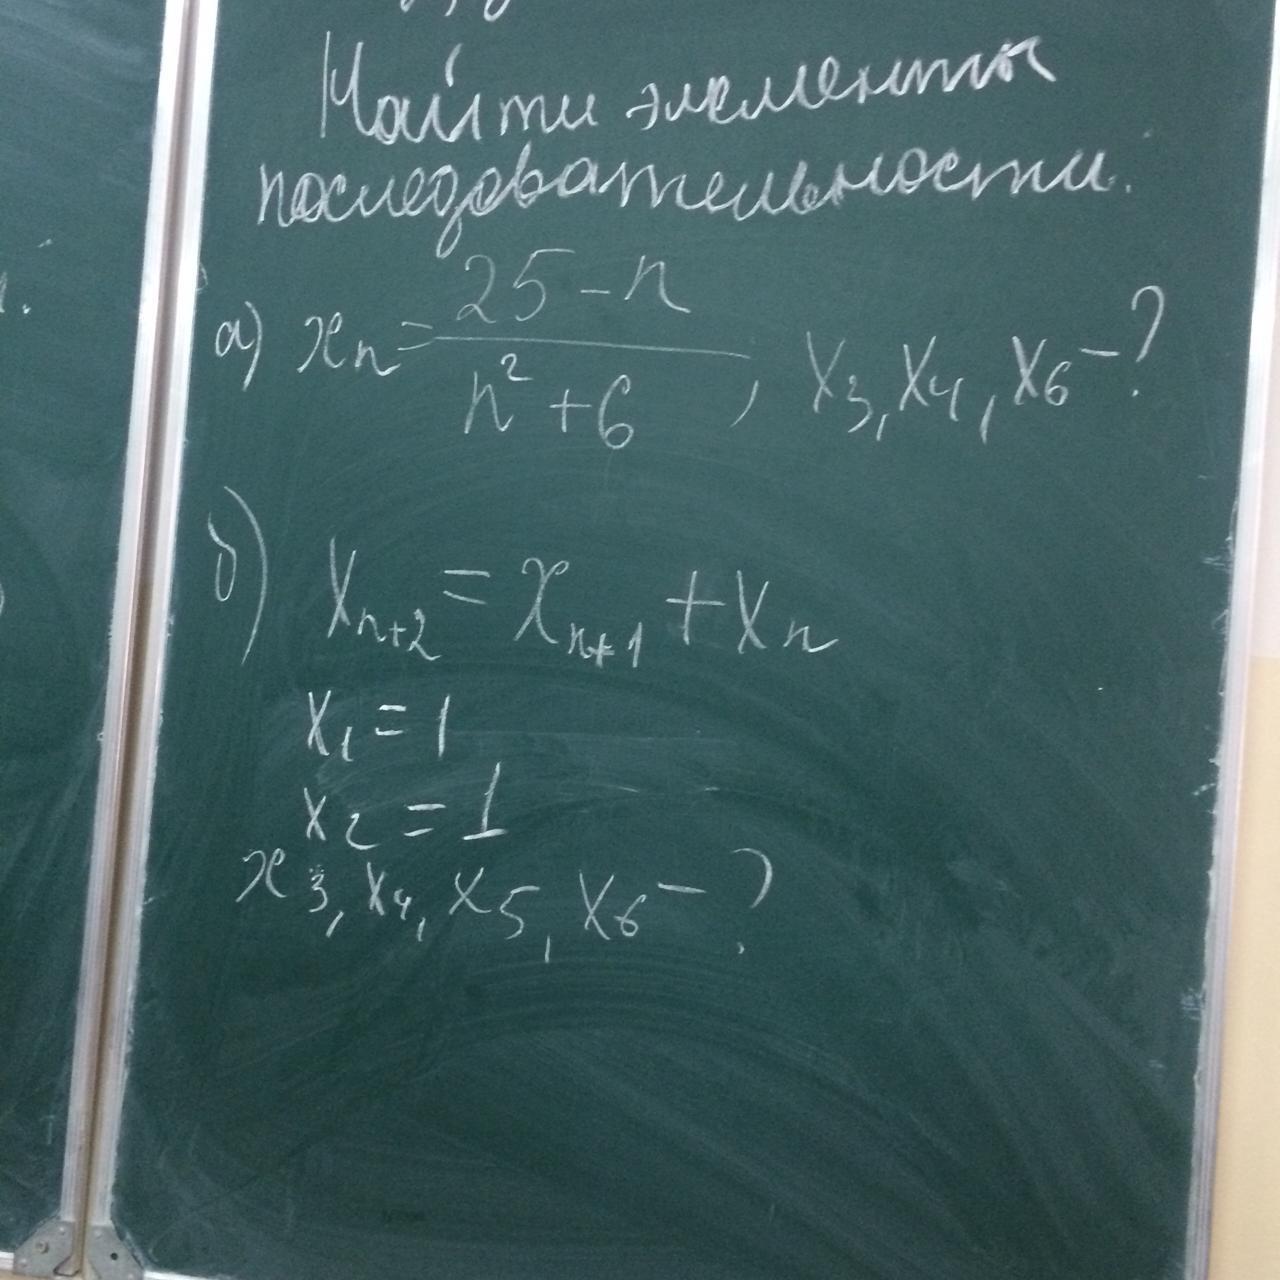 Найти элементы
последовательности.
а) xₙ = (25 - n)/(n² + 6), x₃, x₄, x₆ - ?
б) xₙ₊₂ = xₙ₊₁ + xₙ
x₁ = 1
x₂ = 1
x₃, x₄, x₅, x₆ - ?